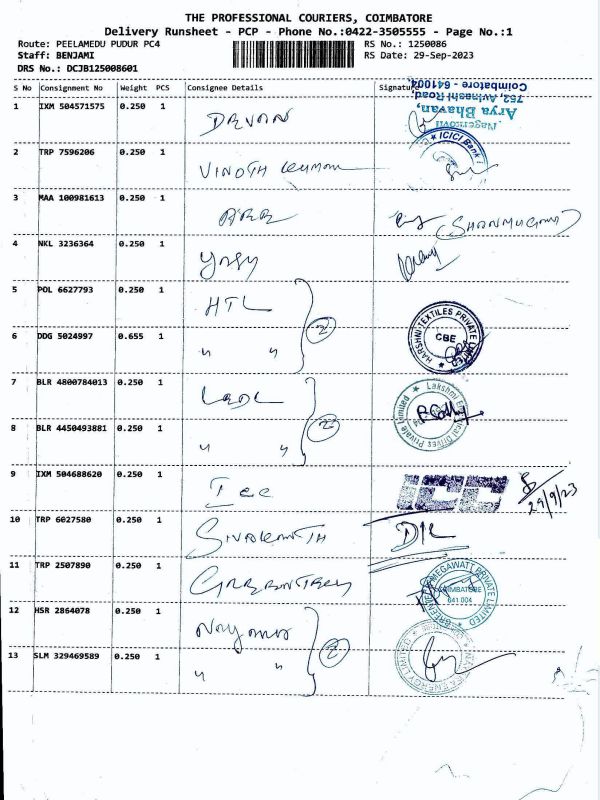 THE PROFESSIONAL COURIERS, COIMBATORE
Delivery Runsheet - PCP - Phone No.:0422-3505555 - Page No.:1
Route: PEELAMEDU PUDUR PC4 RS No.: 1250086
Staff: BENJAMI RS Date: 29-Sep-2023
DRS No.: DCJB125008601
S No Consignment No Weight PCS Consignee Details Signature
Coimbatore - 641004
752, Avinashi Road,
Arya Bhavan,
1 IXM 504571575 0.250 1
ICICI Bank
2 TRP 7596206 0.250 1 VINOTH Kumar
3 MAA 100981613 0.250 1 (SHANMUGAM)
4 NKL 3236364 0.250 1
5 POL 6627793 0.250 1 HTL
HARSHNI TEXTILES PRIVATE LIMITED
CBE
2
6 DDG 5024997 0.655 1 " "
7 BLR 4800784013 0.250 1 LEDL
Lakshmi Electrical Drives Private Limited
2
8 BLR 4450493881 0.250 1 " "
9 IXM 504688620 0.250 1 Icc ICC 29/9/23
10 TRP 6027580 0.250 1
11 TRP 2507890 0.250 1
MEGAWATT PRIVATE LIMITED
COIMBATORE
641 004
12 HSR 2864078 0.250 1
2
13 SLM 329469589 0.250 1 " "
ENERGY LIMITED